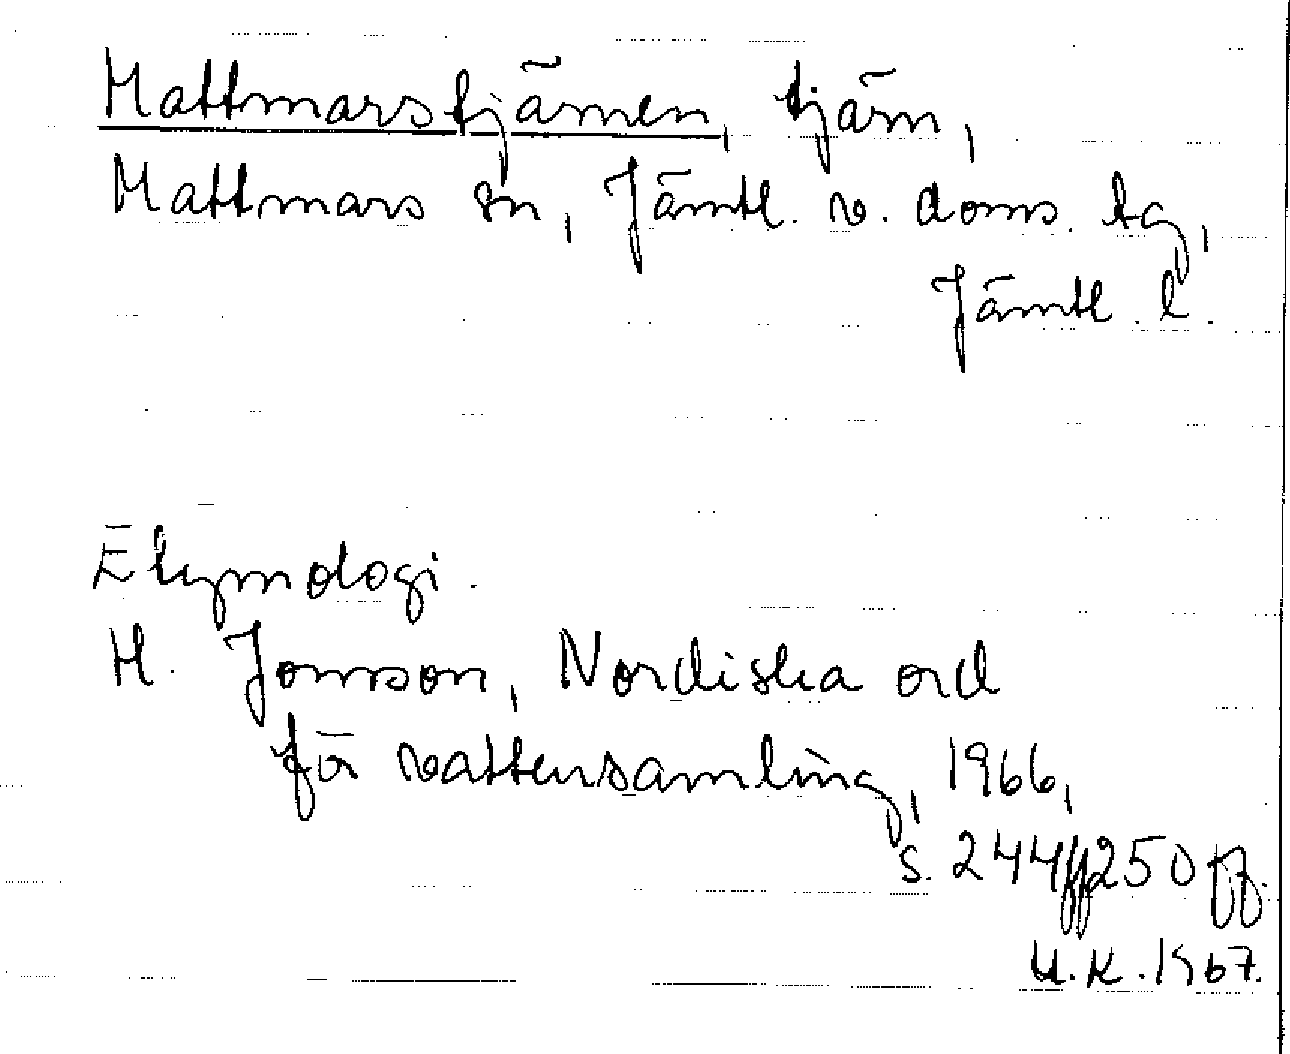 Mattmarstjärnen, tjärn,
Mattmars sn, Jämtl. v. doms. tg,
Jämtl. l.
Etymologi.
H. Jonsson, Nordiska ord
för vattensamling, 1966,
s. 244ff, 250 ff.
U.K. 1967.